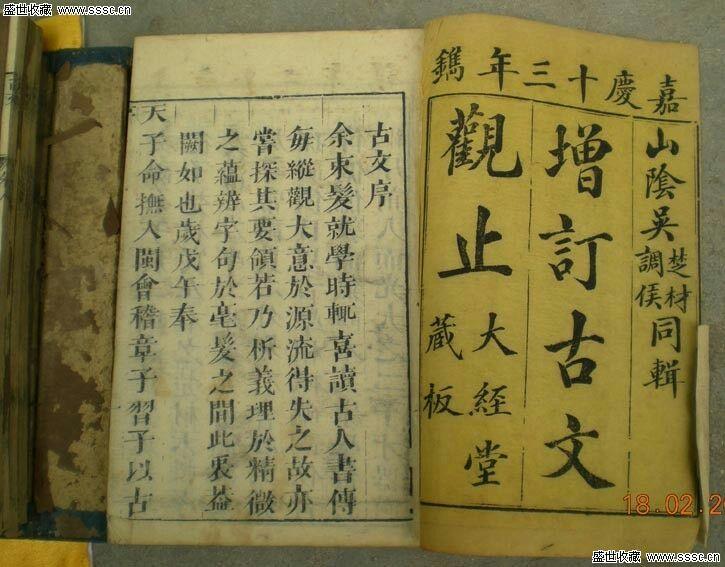 盛世收藏
www.sssc.cn
盛世收藏
www.sssc.cn
嘉慶十三年鐫
山陰吳楚材調侯同輯
增訂古文
觀止
大經堂
藏板
古文序
余束髮就學時輒喜讀古人書傳
每縱觀大意於源流得失之故亦
嘗探其要領若乃析義理於精微
之蘊辨字句於毫髮之間此衷葢
闕如也歲戊午奉
天子命撫八閩會稽章子習子以古
18.02.2
盛世收藏
www.sssc.cn